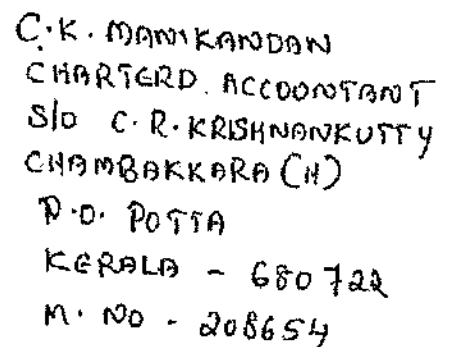 C.K. MANIKANDAN
CHARTERD. ACCOONTANT
S/O C.R.KRISHNANKUTTY
CHAMBAKKARA (H)
P.O. POTTA
KERALA - 680722
M. NO - 208654